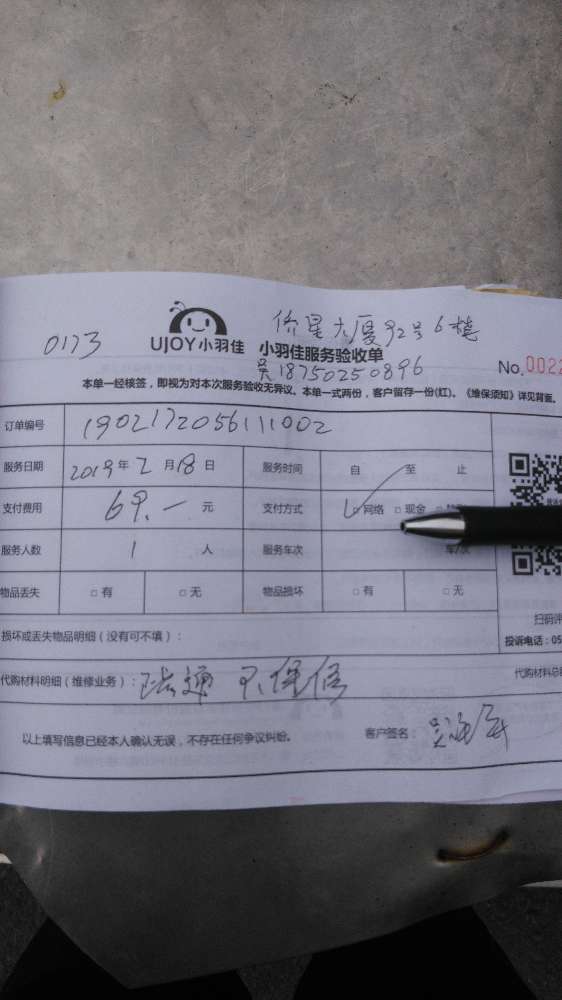 侨星大厦92号6楼
0173
UJOY小羽佳 小羽佳服务验收单
吴18750250896
No.0022
本单一经核签，即视为对本次服务验收无异议。本单一式两份，客户留存一份(红)。《维保须知》详见背面。
订单编号 1902172056111002
服务日期 2019年2月18日 服务时间 自 至 止
支付费用 69.一 元 支付方式 □网络 □现金
服务人数 1 人 服务车次 车/次
物品丢失 □有 □无 物品损坏 □有 □无
损坏或丢失物品明细（没有可不填）：
扫码评
投诉电话：05
代购材料明细（维修业务）： 疏通 不保修
代购材料总
以上填写信息已经本人确认无误，不存在任何争议纠纷。 客户签名： 吴